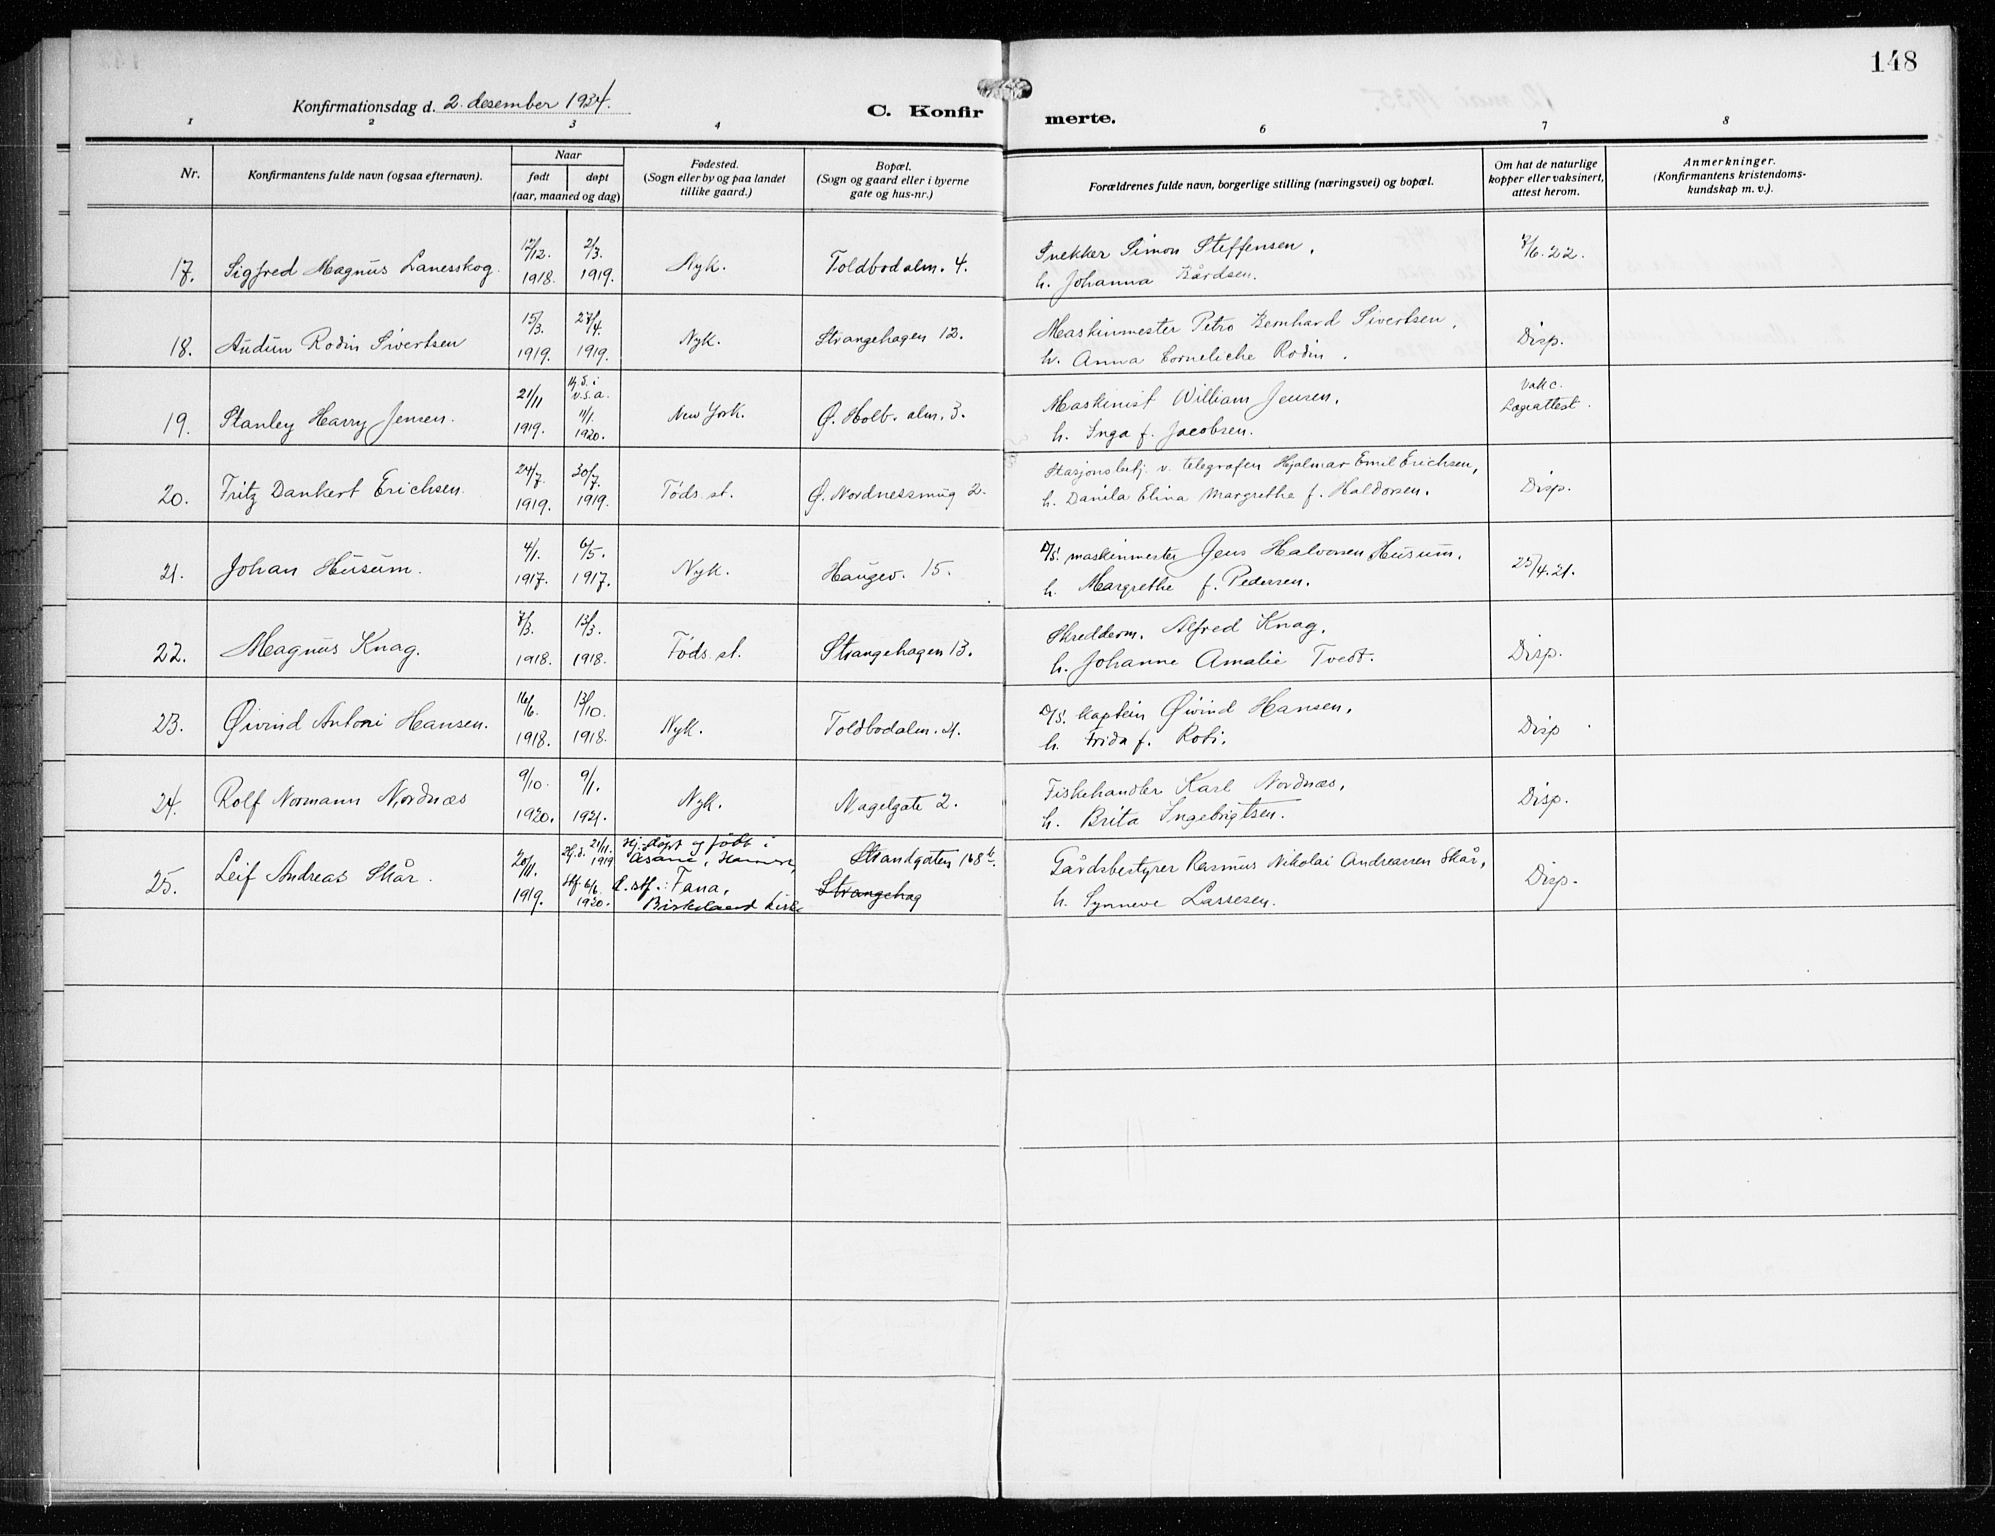 148
Konfirmationsdag d. 2. desember 1934.
C. Konfirmerte.
1 2 3 4 6 7 8
Nr.
Konfirmantens fulde navn (ogsaa efternavn).
Naar
født
døpt
(aar, maaned og dag)
Fødested.
(Sogn eller by og paa landet
tillike gaard.)
Bopæl.
(Sogn og gaard eller i byerne
gate og hus-nr.)
Forældrenes fulde navn, borgerlige stilling (næringsvei) og bopæl.
Om hat de naturlige
kopper eller vaksinert,
attest herom.
Anmerkninger.
(Konfirmantens kristendoms-
kundskap m. v.).
17. Sigfred Magnus Lanesskog. 12/12. 1918. 2/3. 1919. Nyk. Toldbodalm. 4. Snekker Simon Steffensen,
h. Johanna Bårdsen. 7/6.22.
18. Audun Rodin Sivertsen 15/3. 1919. 27/4. 1919. Nyk. Strangehagen 12. Maskinmester Petro Bernhard Sivertsen,
h. Anna Corneliche Rodin. Disp.
19. Stanley Harry Jensen. 21/11 1919. Hj.d. i U.S.A. 11/1. 1920. New York. Ø. Holb. alm. 3. Maskinist William Jensen,
h. Inga f. Jacobsen. Vakc. Lægeattest.
20. Fritz Dankert Erichsen. 24/7. 1919. 30/7. 1919. Føds. st. Ø. Nordnessmug 2. Stasjonsbetj. v. telegrafen Hjalmar Emil Erichsen,
h. Danila Elina Margrethe f. Haldorsen. Disp.
21. Johan Husum. 4/1. 1917. 6/5. 1917. Nyk. Haugev. 15. D/S. maskinmester Jens Halvorsen Husum,
h. Margrethe f. Pedersen. 25/4.21.
22. Magnus Knag. 7/3. 1918. 13/3. 1918. Føds. st. Strangehagen 13. Skredderm. Alfred Knag,
h. Johanne Amalie Tvedt. Disp.
23. Øivind Antoni Hansen. 16/6. 1918. 13/10. 1918. Nyk. Toldbodalm. 21. D/S. kaptein Øivind Hansen,
h. Frida f. Roti. Disp
24. Rolf Normann Nordnæs 9/10. 1920. 9/1. 1921. Nyk. Nagelgate 2. Fiskehandler Karl Nordnæs,
h. Brita Ingebrigtsen. Disp.
25. Leif Andreas Skår. 20/11. 1919. Hj.d. 21/11. 1919 Stf. 6/6. 1920. Hj.døpt og født i
Åsane, Hamre,
d. stf.: Fana,
Birkeland kirke Strandgaten 168 b.
Strangehag Gårdsbestyrer Rasmus Nikolai Andreassen Skår,
h. Synneve Lassesen. Disp.